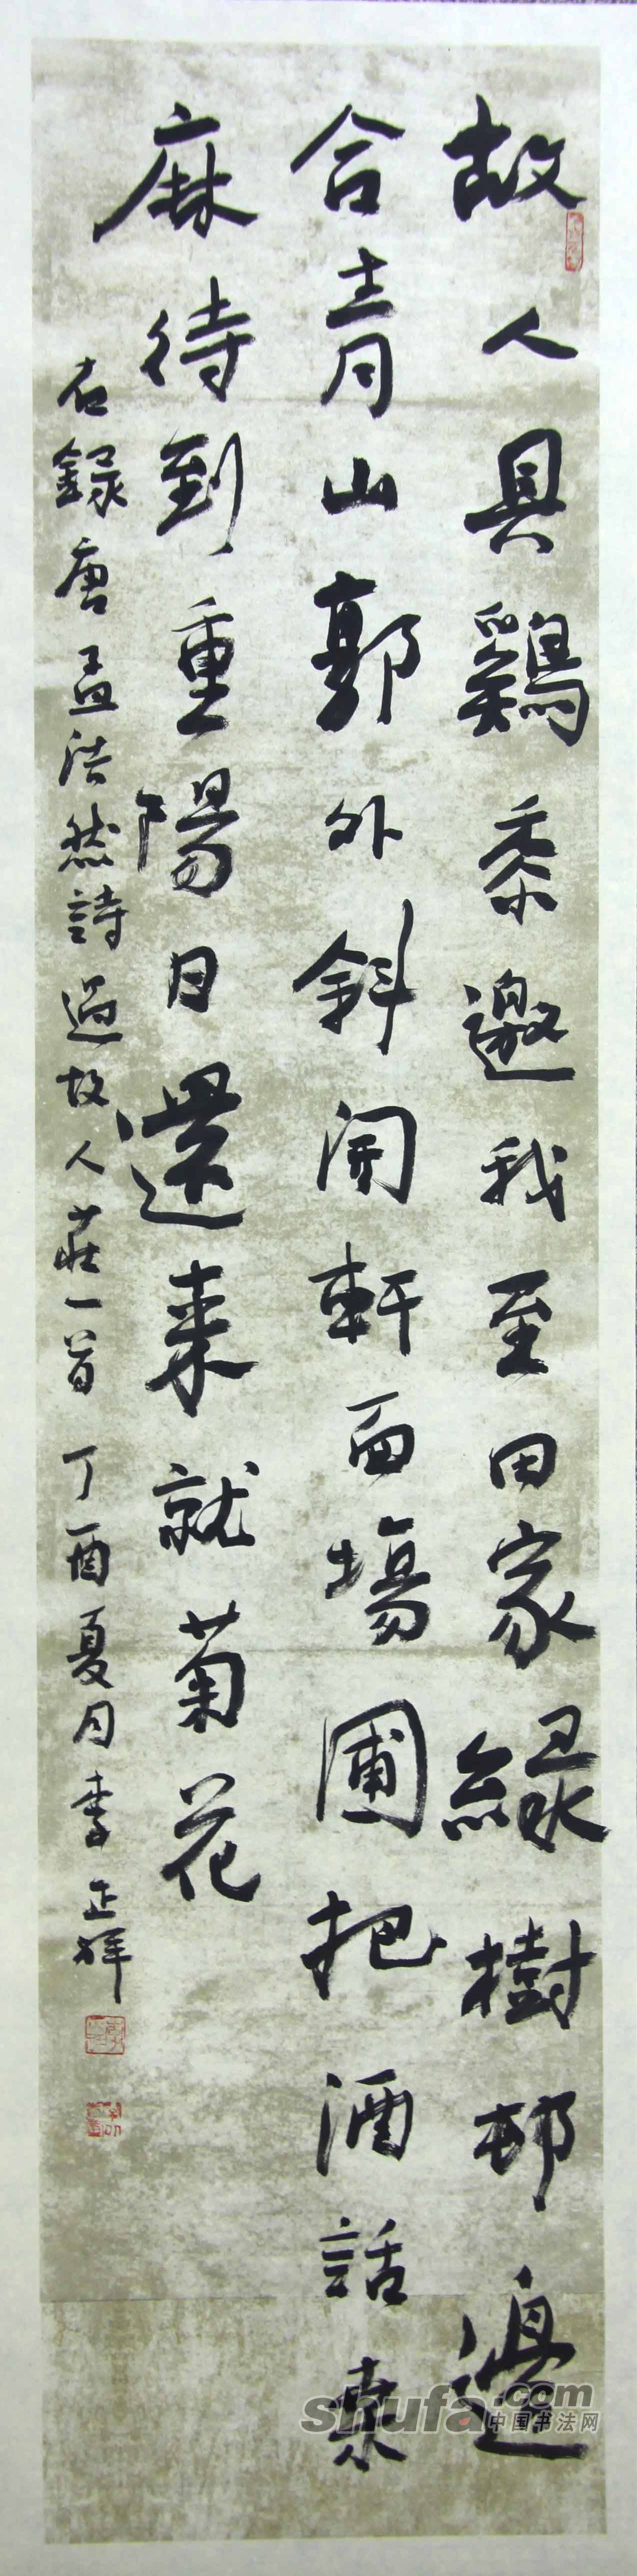 故人具鷄黍邀我至田家緑樹邨邊
合青山郭外斜開軒面塲圃把酒話桑
麻待到重陽日還来就菊花
右録唐孟浩然詩過故人莊一首 丁酉夏月李正祥
shufa.com
中国书法网